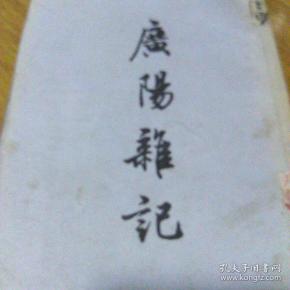 廣陽雜記
孔夫子旧书网